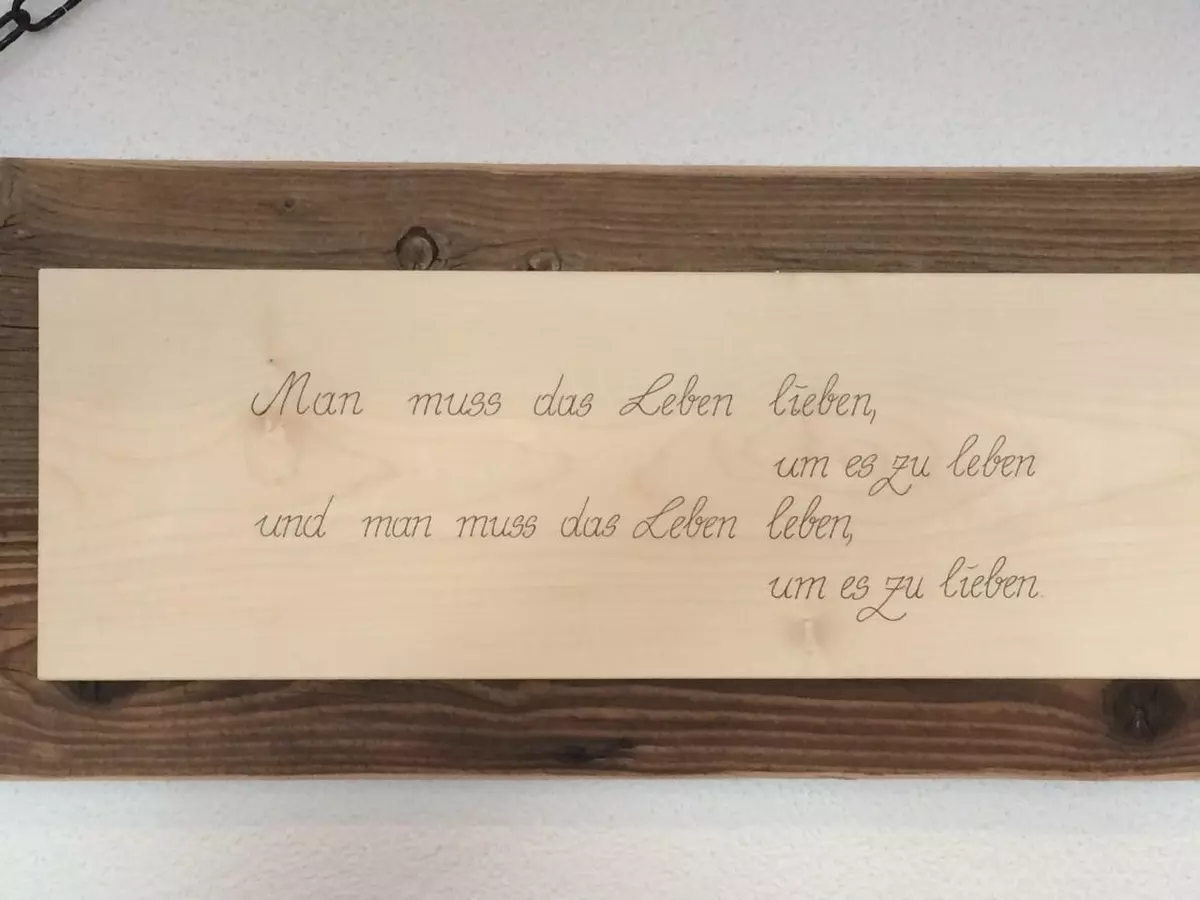 Man muss das Leben lieben,
um es zu leben
und man muss das Leben leben,
um es zu lieben.